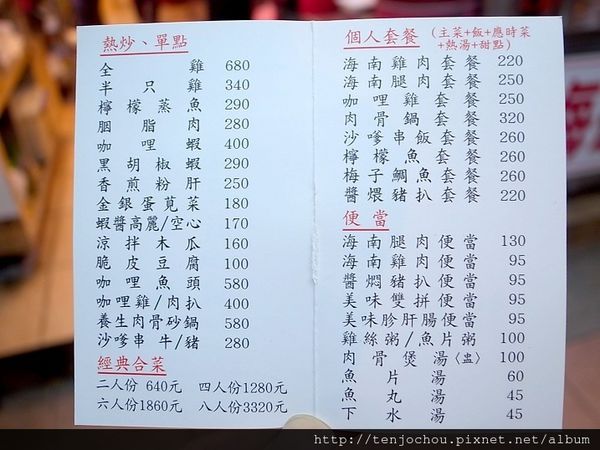 熱炒、單點
全雞 680
半只雞 340
檸檬蒸魚 290
胭脂肉 280
咖哩蝦 400
黑胡椒蝦 290
香煎粉肝 250
金銀蛋莧菜 180
蝦醬高麗/空心 170
涼拌木瓜 160
脆皮豆腐 100
咖哩魚頭 580
咖哩雞/肉扒 400
養生肉骨砂鍋 580
沙嗲串 牛/豬 280
經典合菜
二人份 640元 四人份1280元
六人份1860元 八人份3320元
個人套餐 (主菜+飯+應時菜
+熱湯+甜點)
海南雞肉套餐 220
海南腿肉套餐 250
咖哩雞套餐 250
肉骨鍋套餐 320
沙嗲串飯套餐 260
檸檬魚套餐 260
梅子鯛魚套餐 260
醬煨豬扒套餐 220
便當
海南腿肉便當 130
海南雞肉便當 95
醬燜豬扒便當 95
美味雙拼便當 95
美味胗肝腸便當 95
雞絲粥/魚片粥 100
肉骨煲湯〈盅〉 100
魚片湯 60
魚丸湯 45
下水湯 45
http://tenjochou.pixnet.net/album